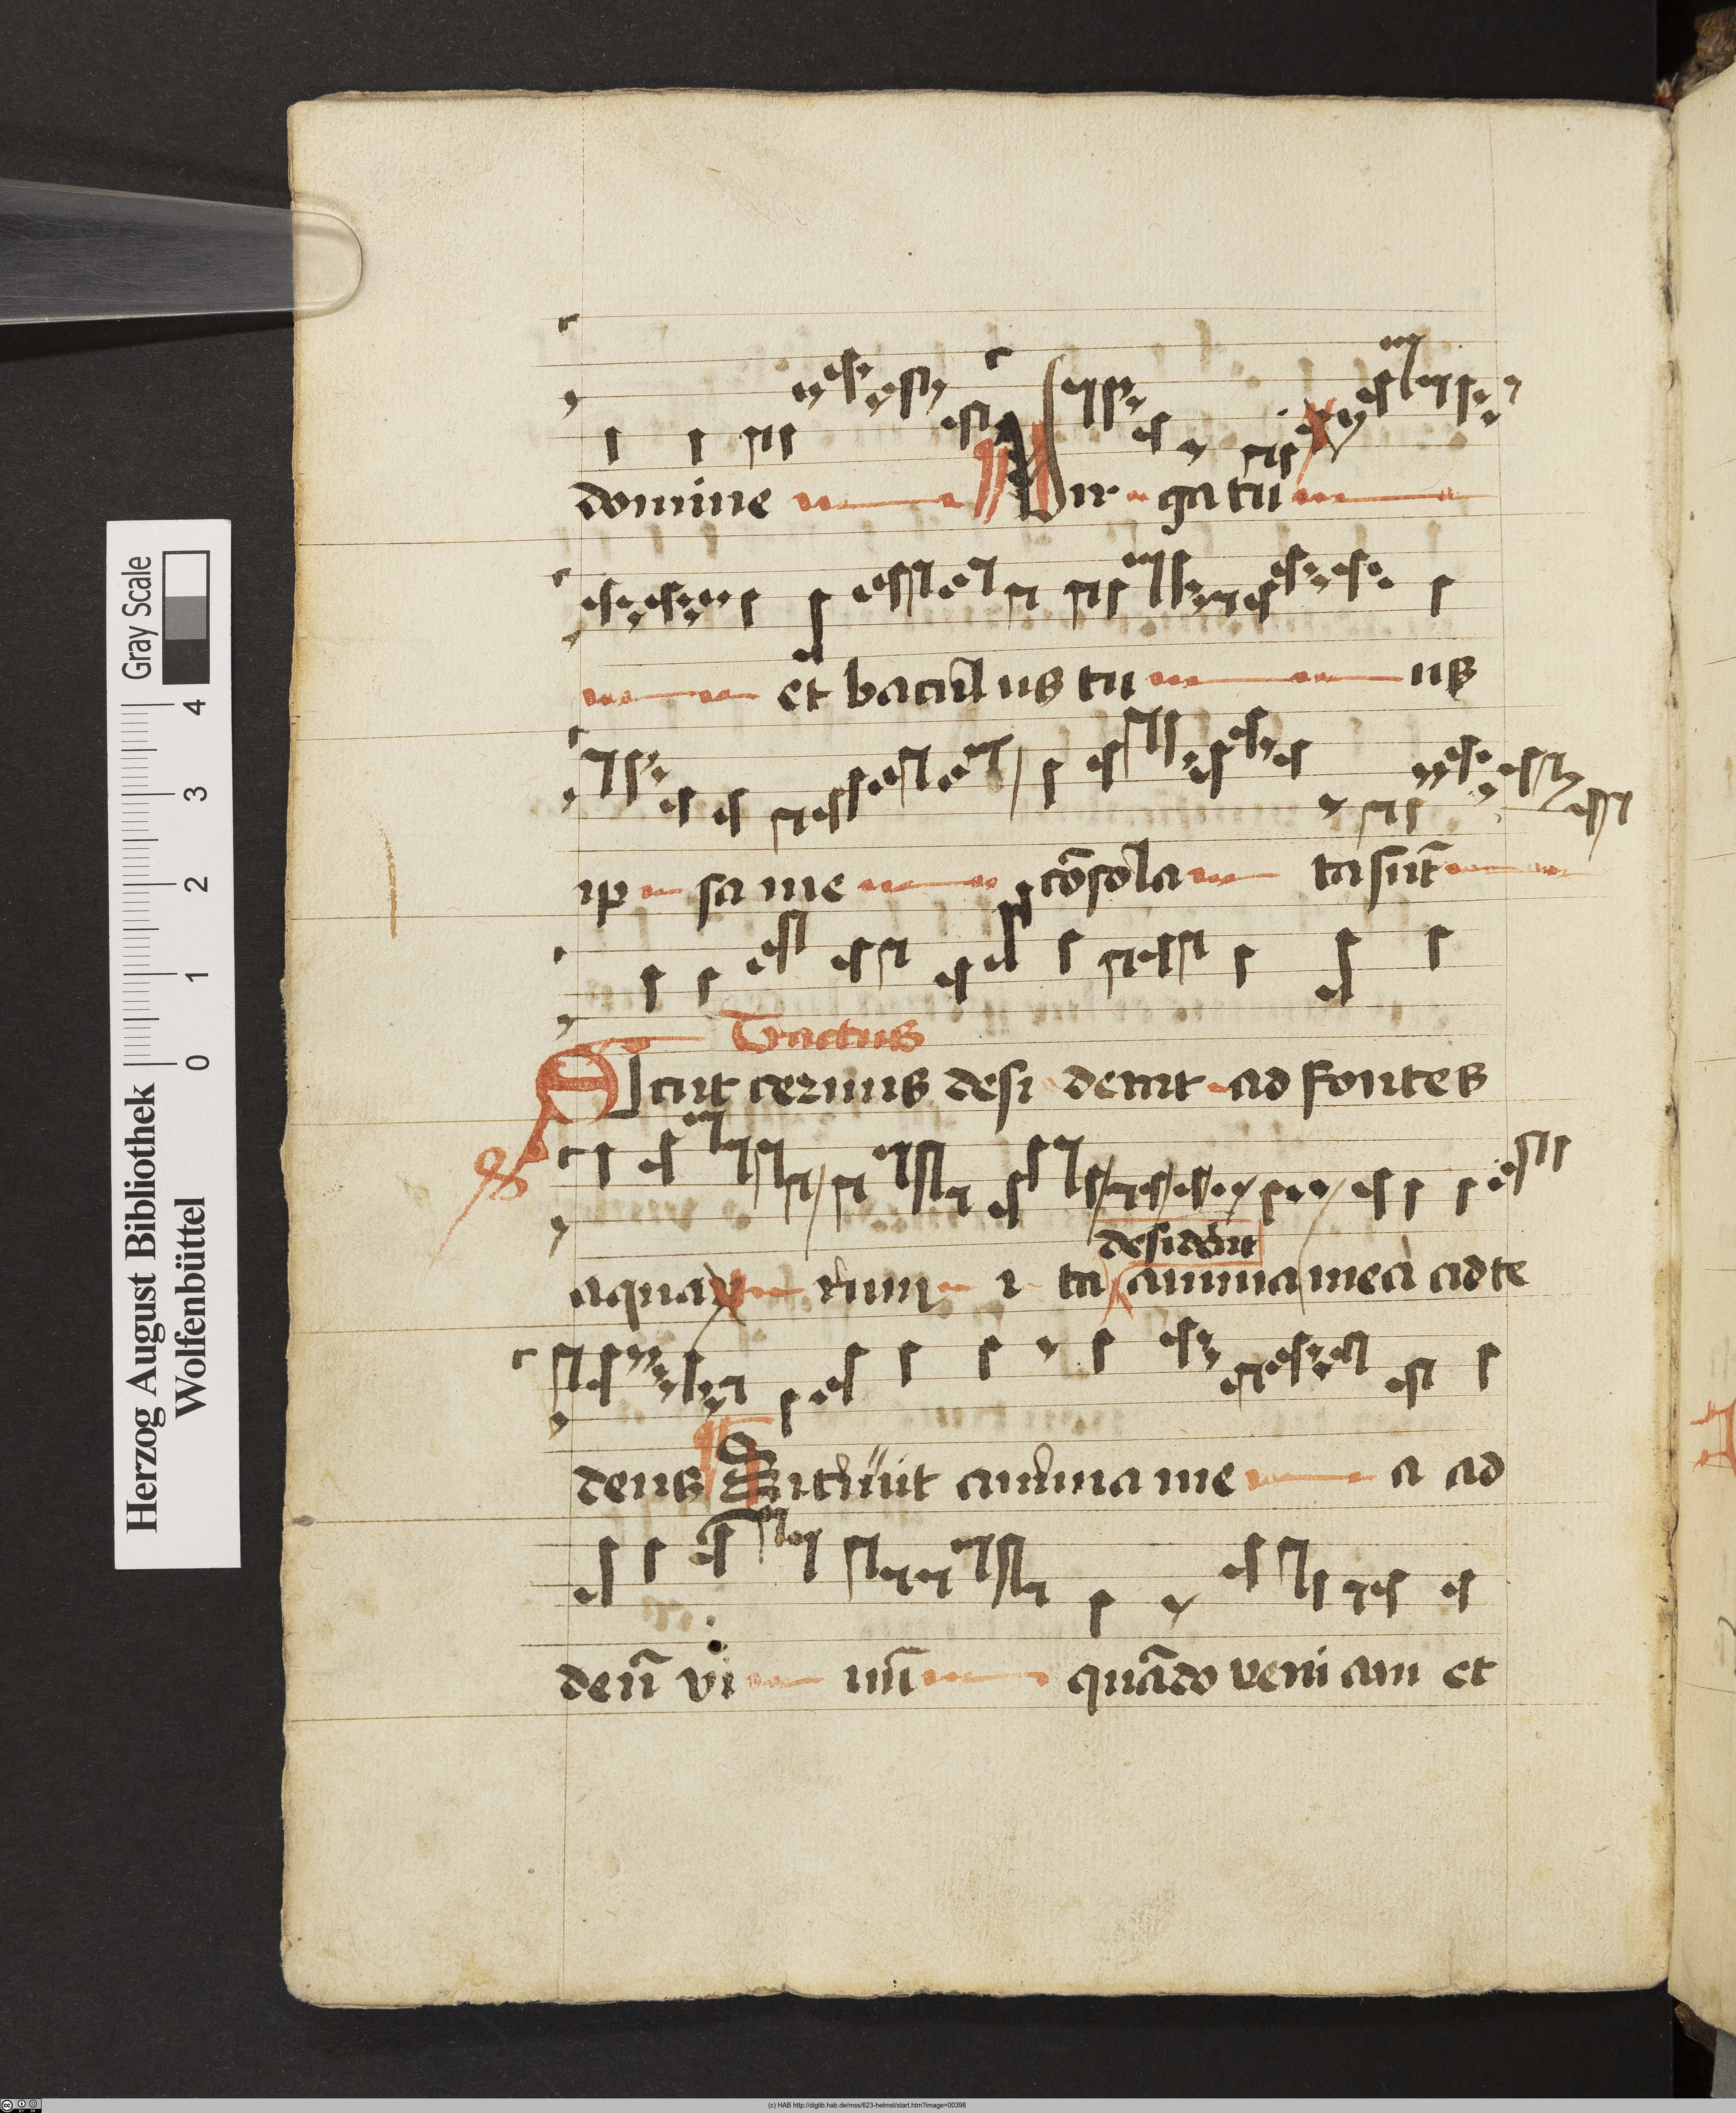 domine Virga tu
et baculus tu us
ip sa me cōsola ta sūt
Tractus
Sicut cervus desi derat ad fontes
aqua rum i ta anima mea ad te
desiderat
deus Sitiuit anima me a ad
deū vi uū quādo veniam et
Herzog August Bibliothek
Wolfenbüttel
0 1 2 3 4
Gray Scale
(c) HAB http://diglib.hab.de/mss/623-helmst/start.htm?image=00398